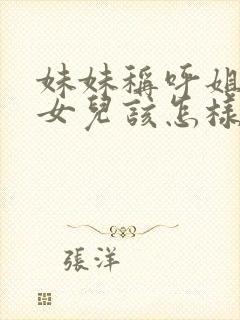 妹妹稱呼姐
女兒該怎樣
張洋